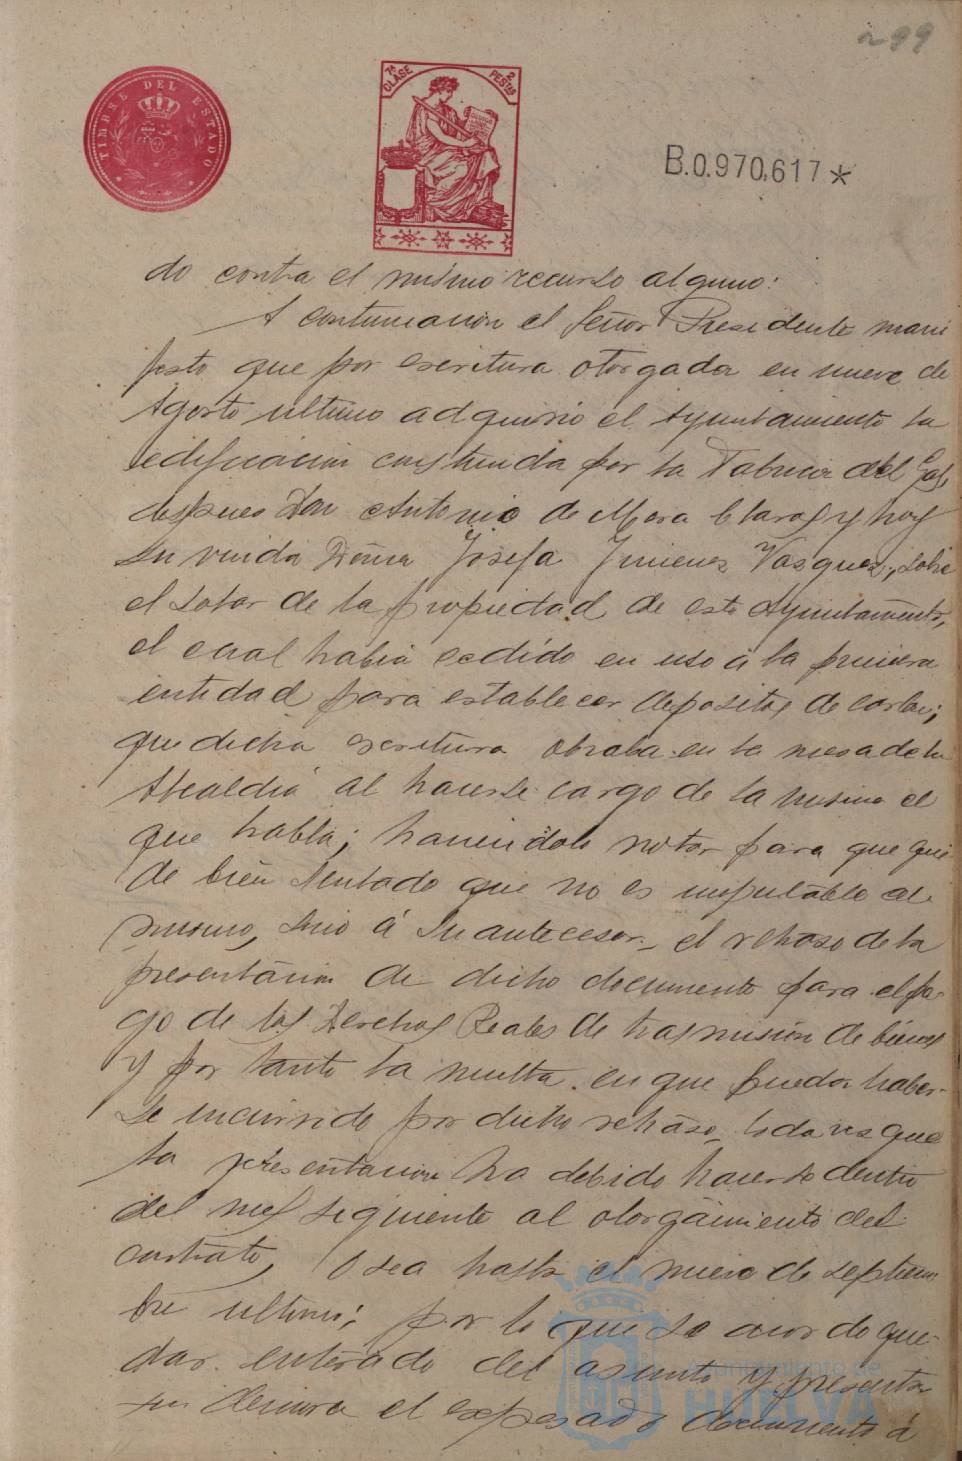 299
TIMBRE DEL ESTADO
7ª CLASE
2 PESTAS
B.0.970.617*
do contra el mismo recurso alguno:
A continuacion el Señor Presidente mani
festo que por escritura otorgada en nueve de
Agosto ultimo adquirio el Ayuntamiento la
edificacion construida por la Fabrica del Gas,
despues Don Antonio de Mora Claros y hoy
su viuda Doña Josefa Jimenez Vazquez, sobre
el solar de la propiedad de este Ayuntamiento,
el cual habia cedido en uso á la primera
entidad para establecer depositos de carbon;
que dicha escritura obraba en la mesa de la
Alcaldia al hacerse cargo de la misma el
que habla; haciendolo notar para que que
de bien sentado que no es imputable al
mismo, sino á su antecesor, el retraso de la
presentacion de dicho documento para el pa-
go de los Derechos Reales de trasmisión de bienes
y por tanto la multa en que pueda haber-
se incurrido por dicho retraso, toda vez que
la presentacion ha debido hacerse dentro
del mes siguiente al otorgamiento del
contrato, ó sea hasta el nueve de septiem
bre ultimo; por lo que se acordo que-
dar enterado del asunto y presentar
sin demora el expresado documento á
Ayuntamiento de
HUELVA